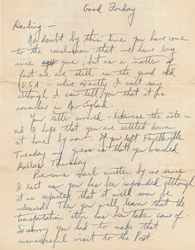 Good Sunday
Darling —
No doubt by this time you have come
to the conclusion that we have long
since gone, but as a matter of
fact we are still in the good old
USA — where exactly I can't say
although I can tell you that it's
somewhere in New England.
Your letter arrived
and I hope that you are settled
at hand by now. If you left Fayetteville
Tuesday I guess that you reached
Thursday
written by us since
I last saw you has been
it is expected that it will soon be
released. Then you will learn that the
transportation has been taken care of
So sorry you had to make that
unsuccessful visit to the Post.